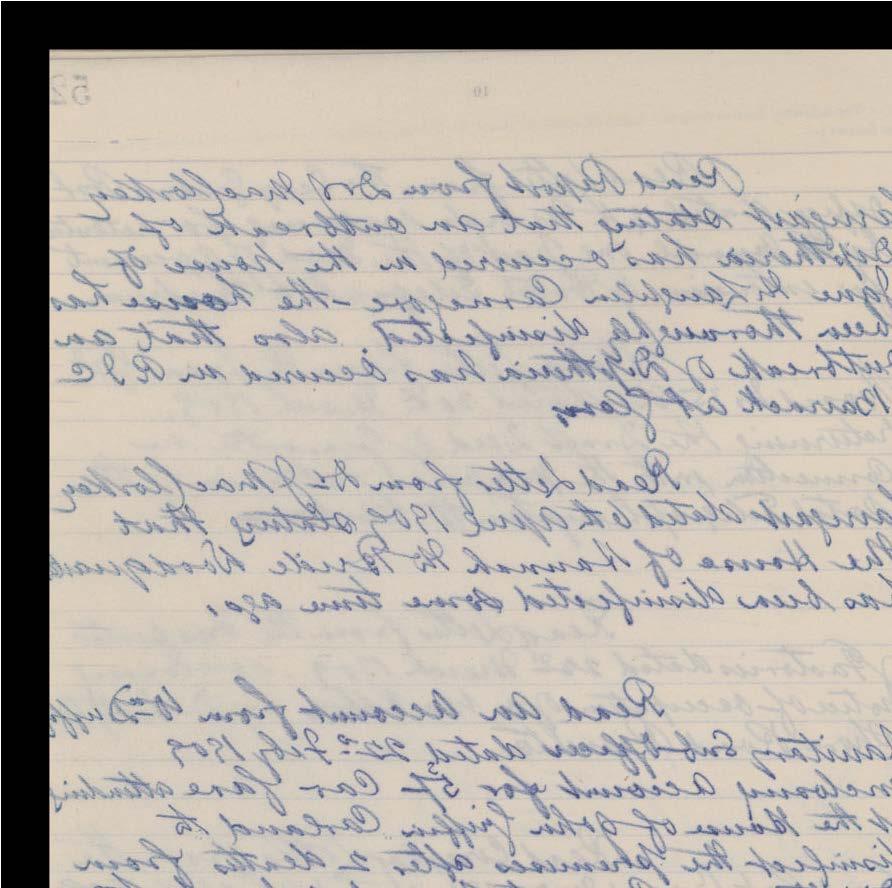 52
10
Read Report from Dr J Macloskey
stating that an outbreak of
Dipotheria has occurred in the house of
Jane McLaughlin Carnegore - the house has
been thoroughly disinfected, also that an
outbreak of Diptheria has occurred in R I C
Barrack at
Read Letter from Dr J Macloskey
dated 6th April 1909 stating that
the House of Hannah McBride
has been disinfected some time ago.
Read an account from Wm Duffy
Sanitary Sub Officer dated 22nd Feby 1909
enclosing account for 5/- Car fare attending
at the House of John Griffin to
disinfect the premises after 2 deaths from